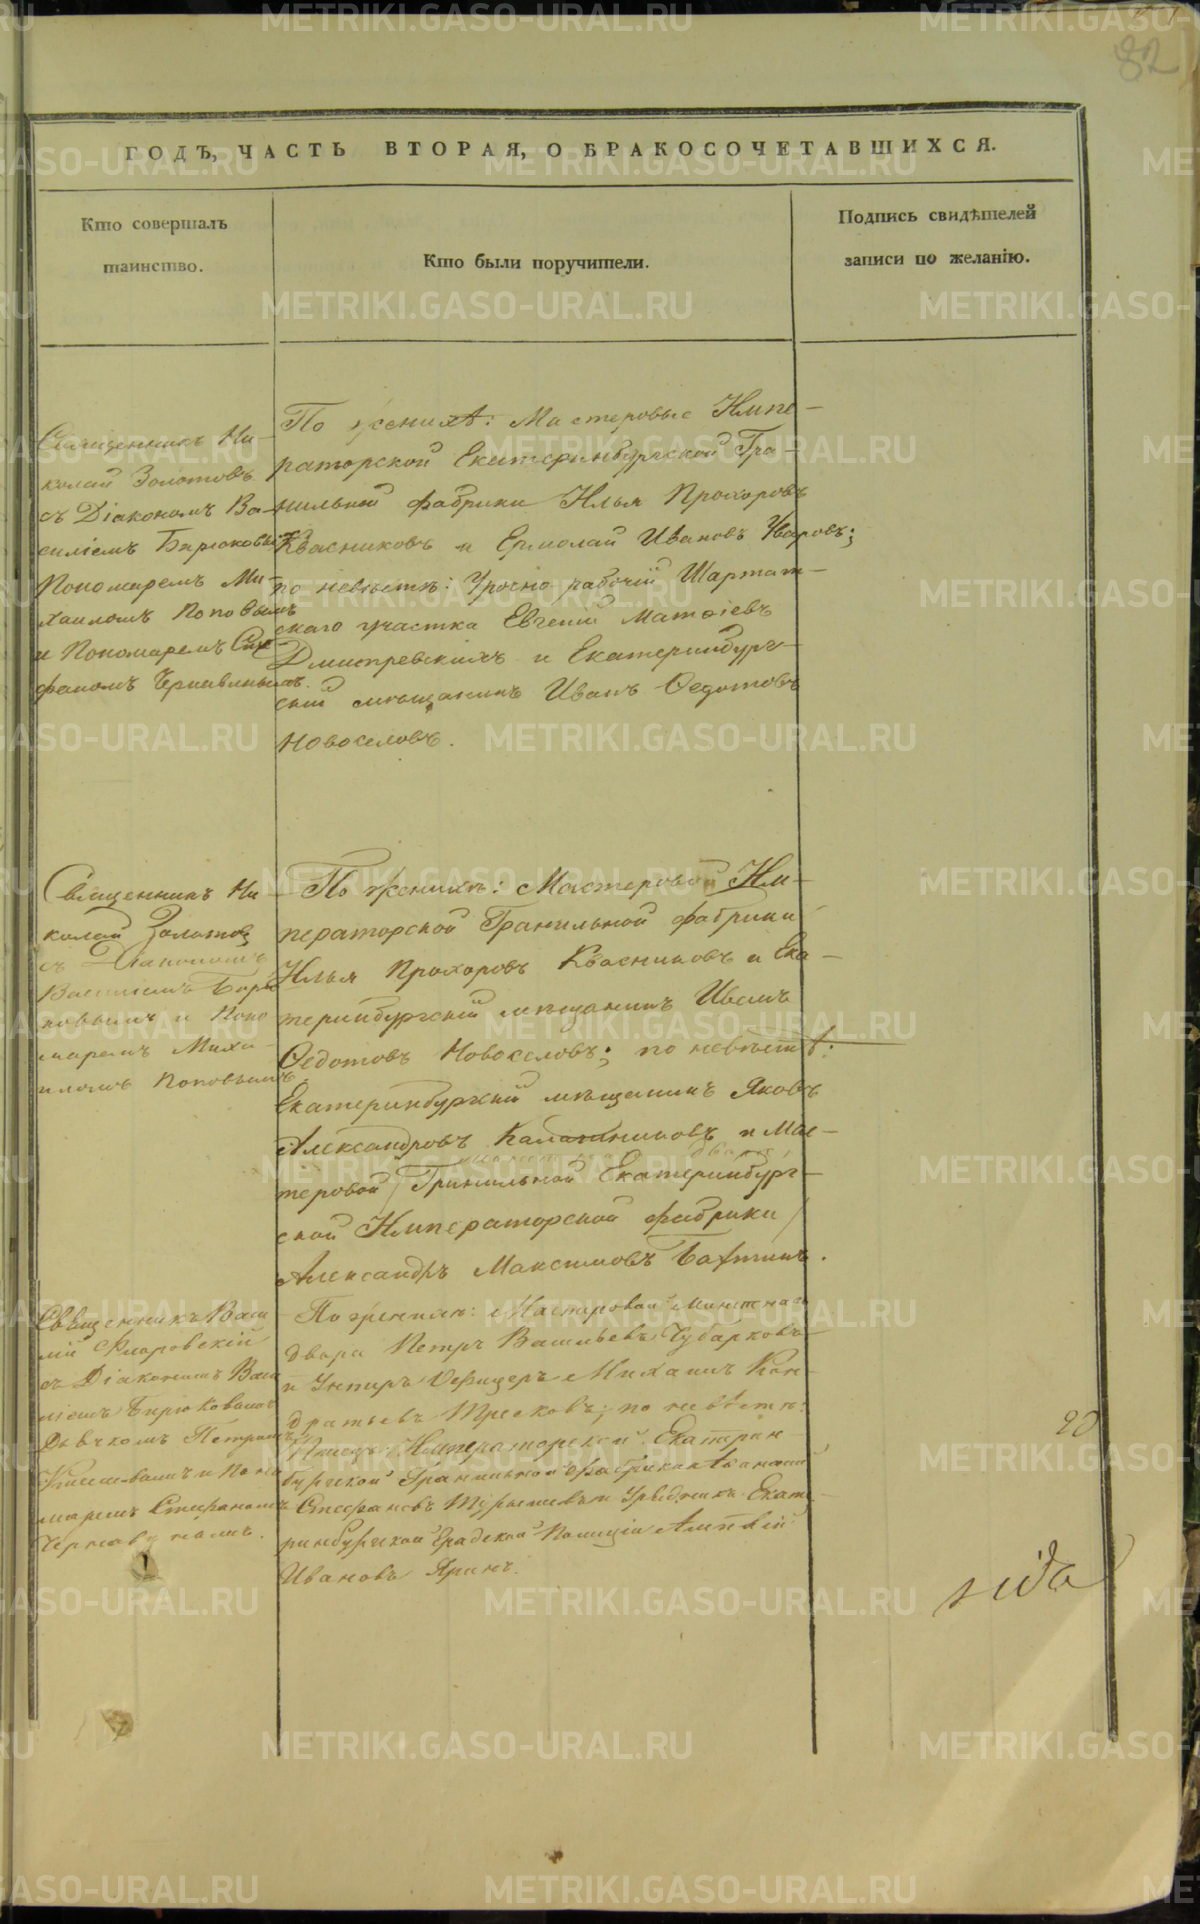 82
ГОДЪ, ЧАСТЬ ВТОРАЯ, О БРАКОСОЧЕТАВШИХСЯ.
Кто совершалъ
таинство.
Кто были поручители.
Подпись свидѣтелей
записи по желанію.
Священникъ Ни-
колай Золотовъ
съ Діакономъ Ва-
силіемъ Бирюковымъ
Пономаремъ Ми-
хаиломъ Поповымъ
и Пономаремъ Сте
фаномъ Чернавинымъ.
По женихѣ: Мастеровые Импе-
раторской Екатеринбургской Гра-
нильной фабрики Илья Прохоровъ
Квасниковъ и Ермолай Ивановъ Уваровъ;
по невѣстѣ: Урочно рабочій Шарташ-
скаго участка Евгеній Матѳіевъ
Дмитревскихъ и Екатеринбург-
скій мѣщанинъ Иванъ Ѳедотовъ
Новоселовъ.
Священникъ Ни
колай Золотовъ
съ Діакономъ
Василіемъ Бирю
ковымъ и Поно
маремъ Миха-
иломъ Поповымъ
По женихѣ: Мастеровой Им-
ператорской Гранильной фабрики
Илья Прохоровъ Квасниковъ и Ека-
теринбургскій мѣщанинъ Иванъ
Ѳедотовъ Новоселовъ; по невѣстѣ:
Екатеринбургскій мѣщанинъ Яковъ
Александровъ Калашниковъ и Мас-
теровой Гранильной Екатеринбург-
ской Императорской фабрики
Александръ Максимовъ
Священникъ Васи
лій Флоровскій
съ Діакономъ Васи
ліемъ Бирюковымъ
Дьячкомъ Петромъ
и Поно
маремъ Стефаномъ
По женихѣ: Мастеровой Монетнаго
двора Петръ Васильевъ Чубарковъ
и Унтеръ Офицеръ Михаилъ Кон-
дратьевъ Тресковъ; по невѣстѣ:
Писецъ Императорской Екатерин-
бургской Гранильной фабрики
Стефановъ и Урядникъ Екате-
ринбургской Градской Полиціи
Ивановъ